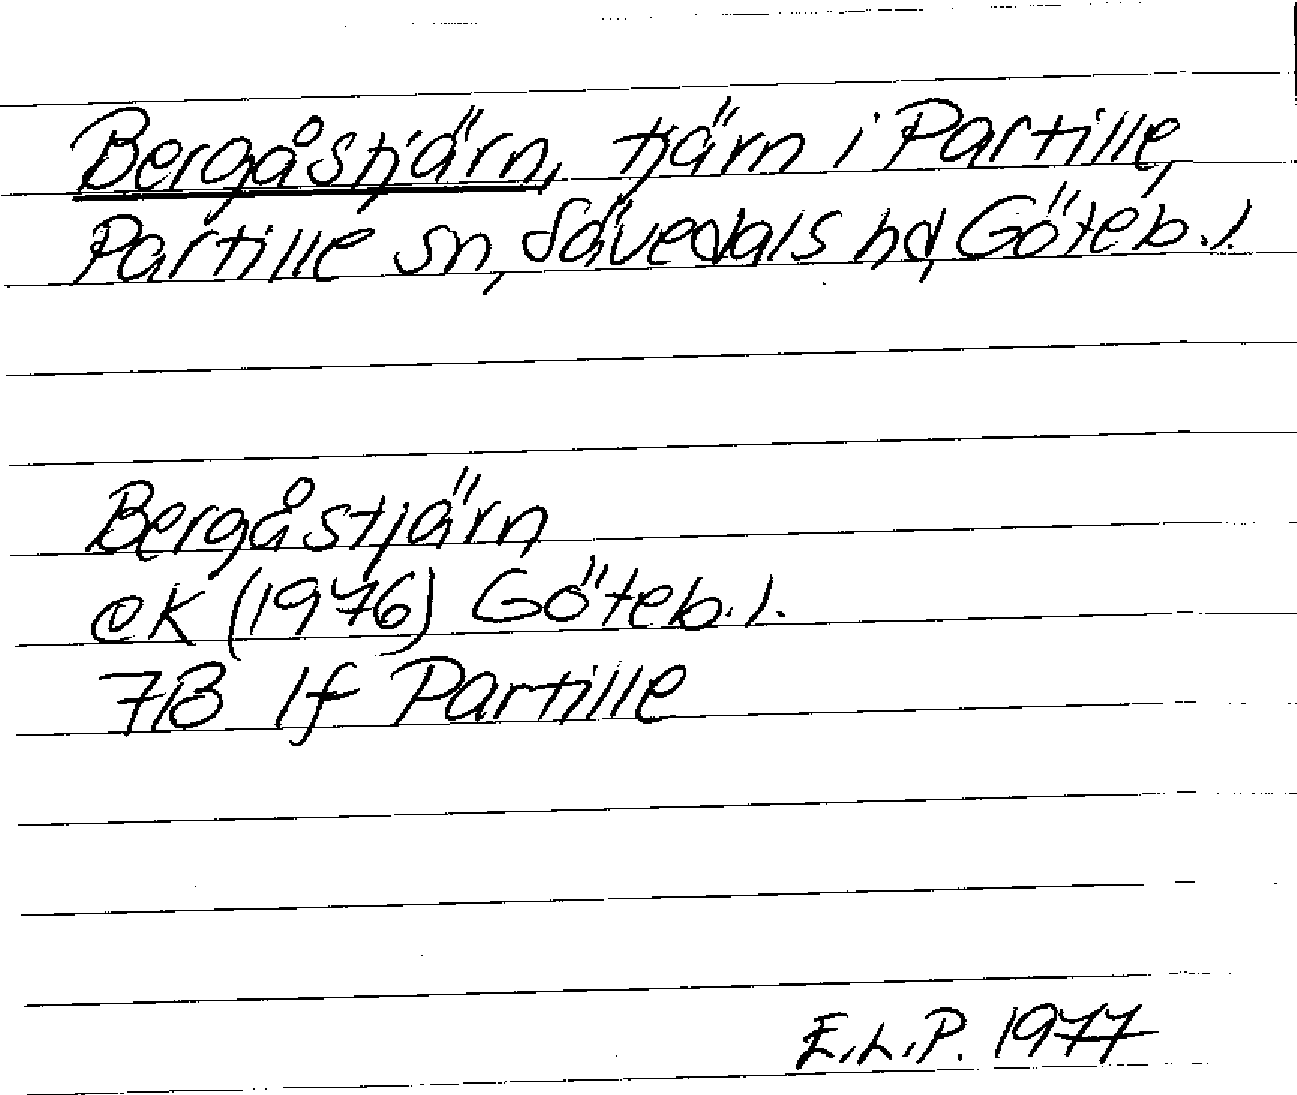 Bergåstjärn, tjärn i Partille,
Partille sn, Sävedals hd, Göteb.l.
Bergåstjärn
ek (1976) Göteb.l.
7B 1f Partille
E.L.P. 1977